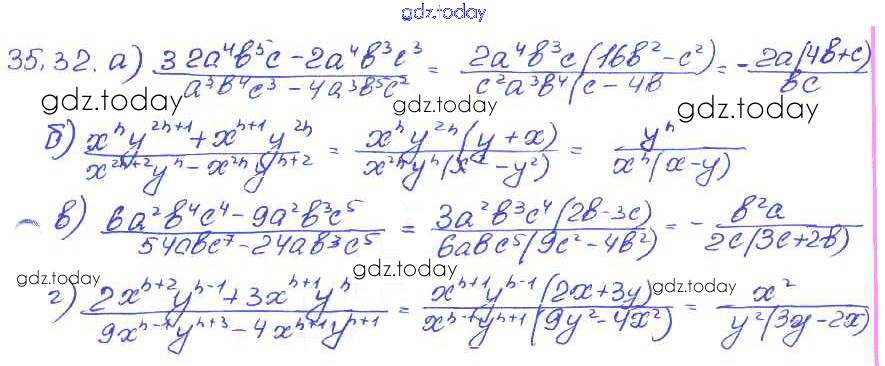 gdz.today
35.32. а) (32a⁴b⁵c - 2a⁴b³c³)/(a³b⁴c³ - 4a³b⁵c²) = (2a⁴b³c(16b² - c²))/(c²a³b⁴(c - 4b) = -(2a(4b+c))/(bc)
gdz.today gdz.today gdz.today
б) (xⁿy²ⁿ⁺¹ + xⁿ⁺¹y²ⁿ)/(x²ⁿ⁺²yⁿ - x²ⁿyⁿ⁺²) = (xⁿy²ⁿ(y + x))/(x²ⁿyⁿ(x² - y²)) = yⁿ/(xⁿ(x-y))
в) (6a²b⁴c⁴ - 9a²b³c⁵)/(54abc⁷ - 24ab³c⁵) = (3a²b³c⁴(2b-3c))/(6abc⁵(9c² - 4b²)) = -(b²a)/(2c(3c+2b))
gdz.today gdz.today gdz.today
г) (2xⁿ⁺²yⁿ⁻¹ + 3xⁿ⁺¹yⁿ)/(9xⁿ⁻¹yⁿ⁺³ - 4xⁿ⁺¹yⁿ⁺¹) = (xⁿ⁺¹yⁿ⁻¹(2x+3y))/(xⁿ⁻¹yⁿ⁺¹(9y² - 4x²)) = x²/(y²(3y-2x))